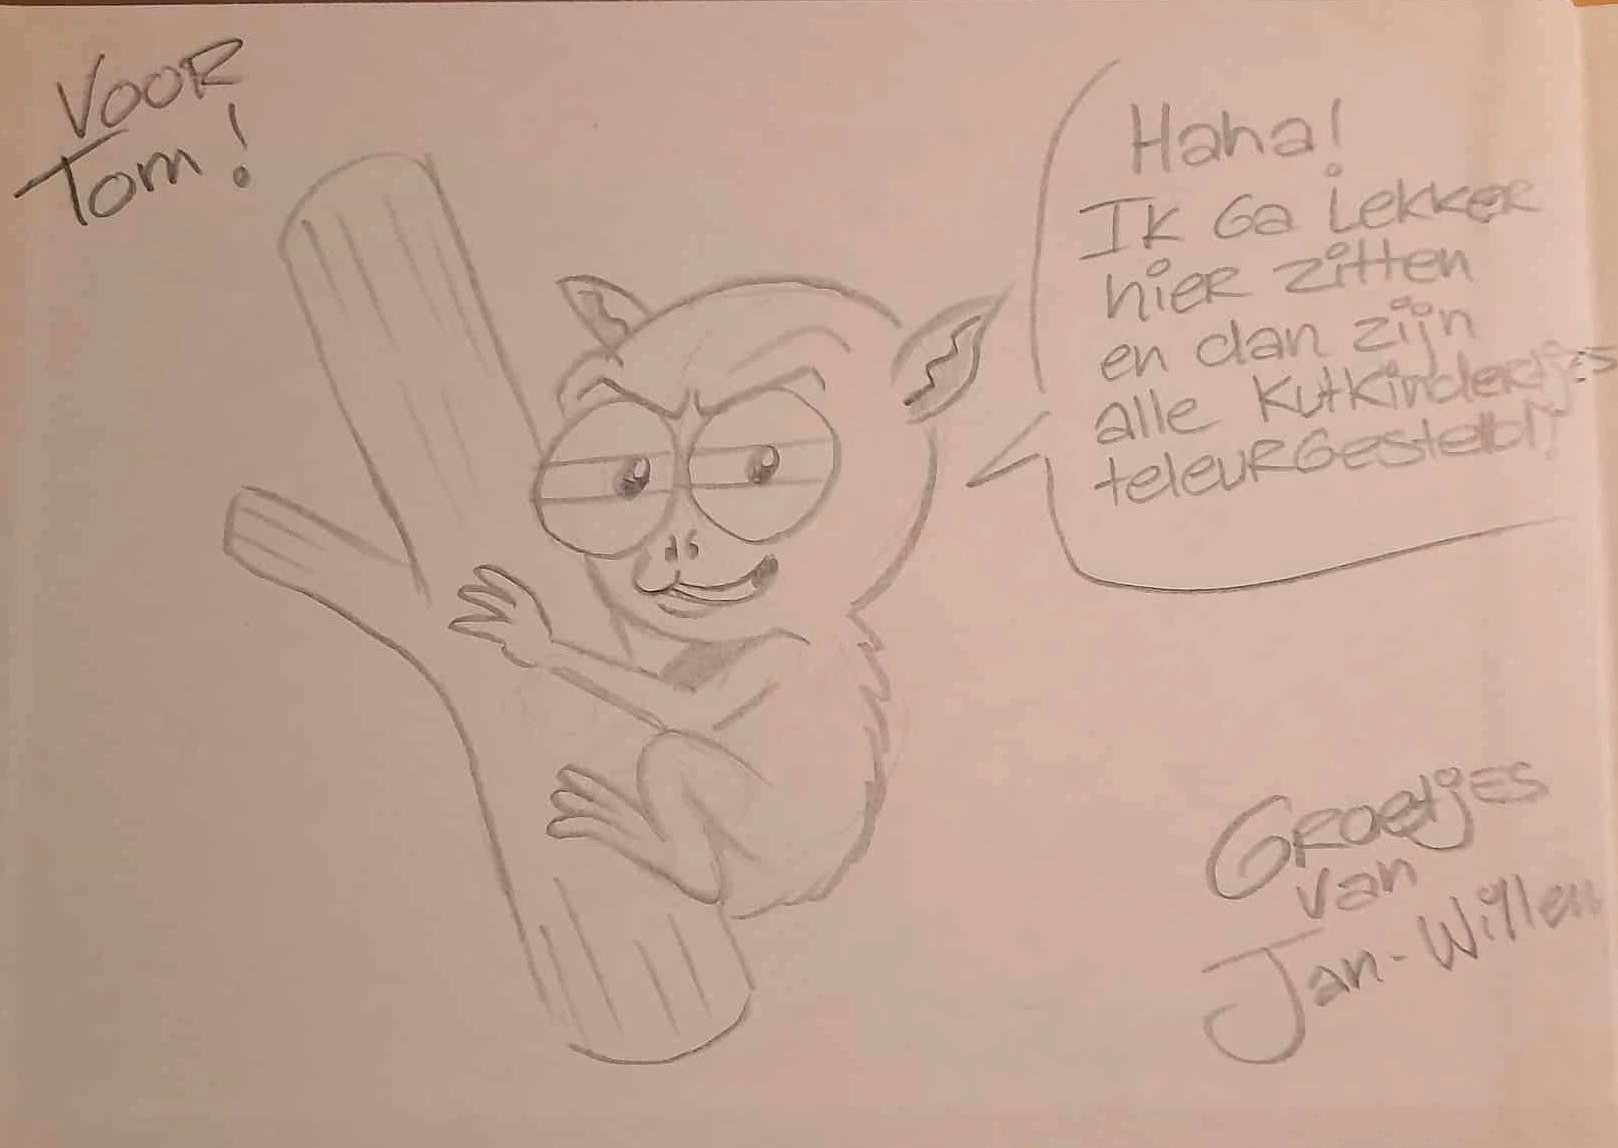 VOOR
Tom!
Haha!
Ik Ga Lekker
hier zitten
en dan zijn
alle Kutkindertjes
teleurGesteld!
Groetjes
van
Jan-Willem